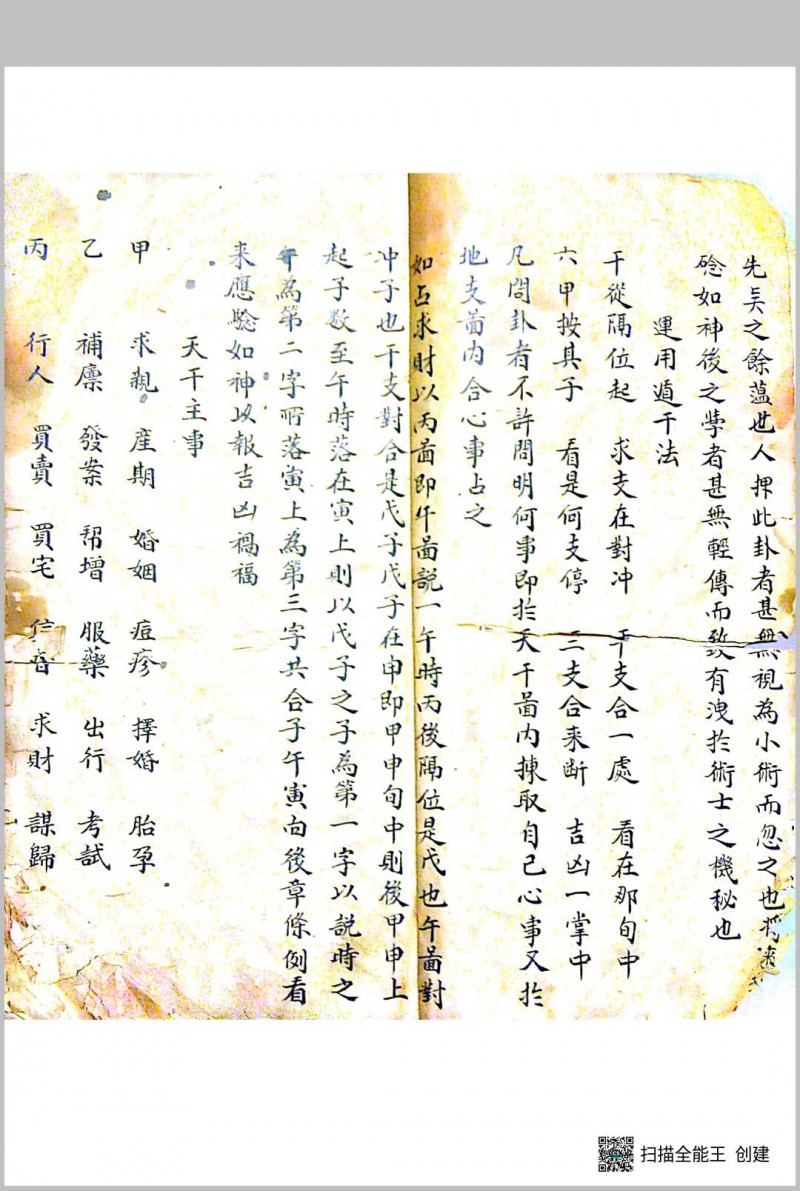 先矣之餘藴世人押此卦者甚無視為小術而忽之也
騐如神後之學者甚無輕傳而致有洩扵術士之機秘也
運用遁干法
干從隔位起 求支在對冲 干支合一處 看在那旬中
六甲按其子 看是何支停 三支合来断 吉凶一掌中
凡問卦者不許問明何事即扵天干啚内揀取自己心事又扵
地支啚内合心事占之
如占求財以丙啚即午啚説一午時丙後隔位是戊也午啚對
冲子也干支對合是戊子戊子在申即甲申旬中則後甲申上
起子数至午時落在寅上則以戊子之子為第一字以説時之
午為第二字所落寅上為第三字共合子午寅向後章條例看
来應騐如神以報吉凶禍福
天干主事
甲 求親 産期 婚姻 痘疹 擇婚 胎孕
乙 補廪 發案 帮增 服藥 出行 考試
丙 行人 買賣 買宅 信音 求財 謀歸
扫描全能王 创建